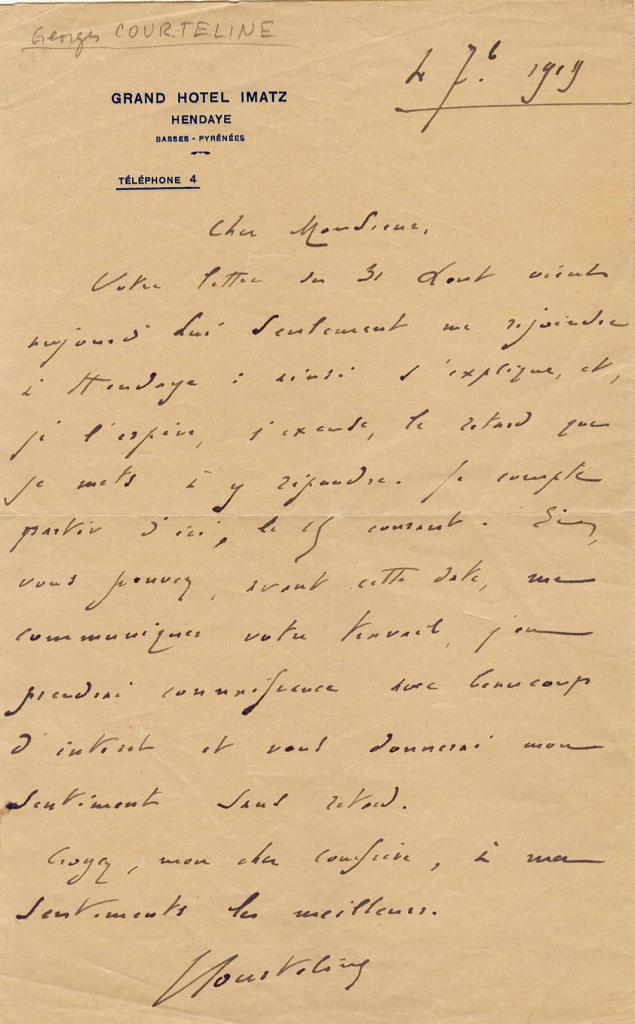 Georges COURTELINE
4 7.b 1919
GRAND HOTEL IMATZ
HENDAYE
BASSES - PYRÉNÉES
TÉLÉPHONE 4
Cher Monsieur,
Votre lettre du 31 août vient
aujourd'hui seulement me rejoindre
à Hendaye : ainsi s'explique, et,
je l'espère, s'excuse, le retard que
je mets à y répondre. Je compte
partir d'ici, le 15 courant. Si,
vous pouvez, avant cette date, me
communiquer votre travail, j'en
prendrai connaissance avec beaucoup
d'intérêt et vous donnerai mon
sentiment sans retard.
Croyez, mon cher confrère, à mes
sentiments les meilleurs.
Courteline